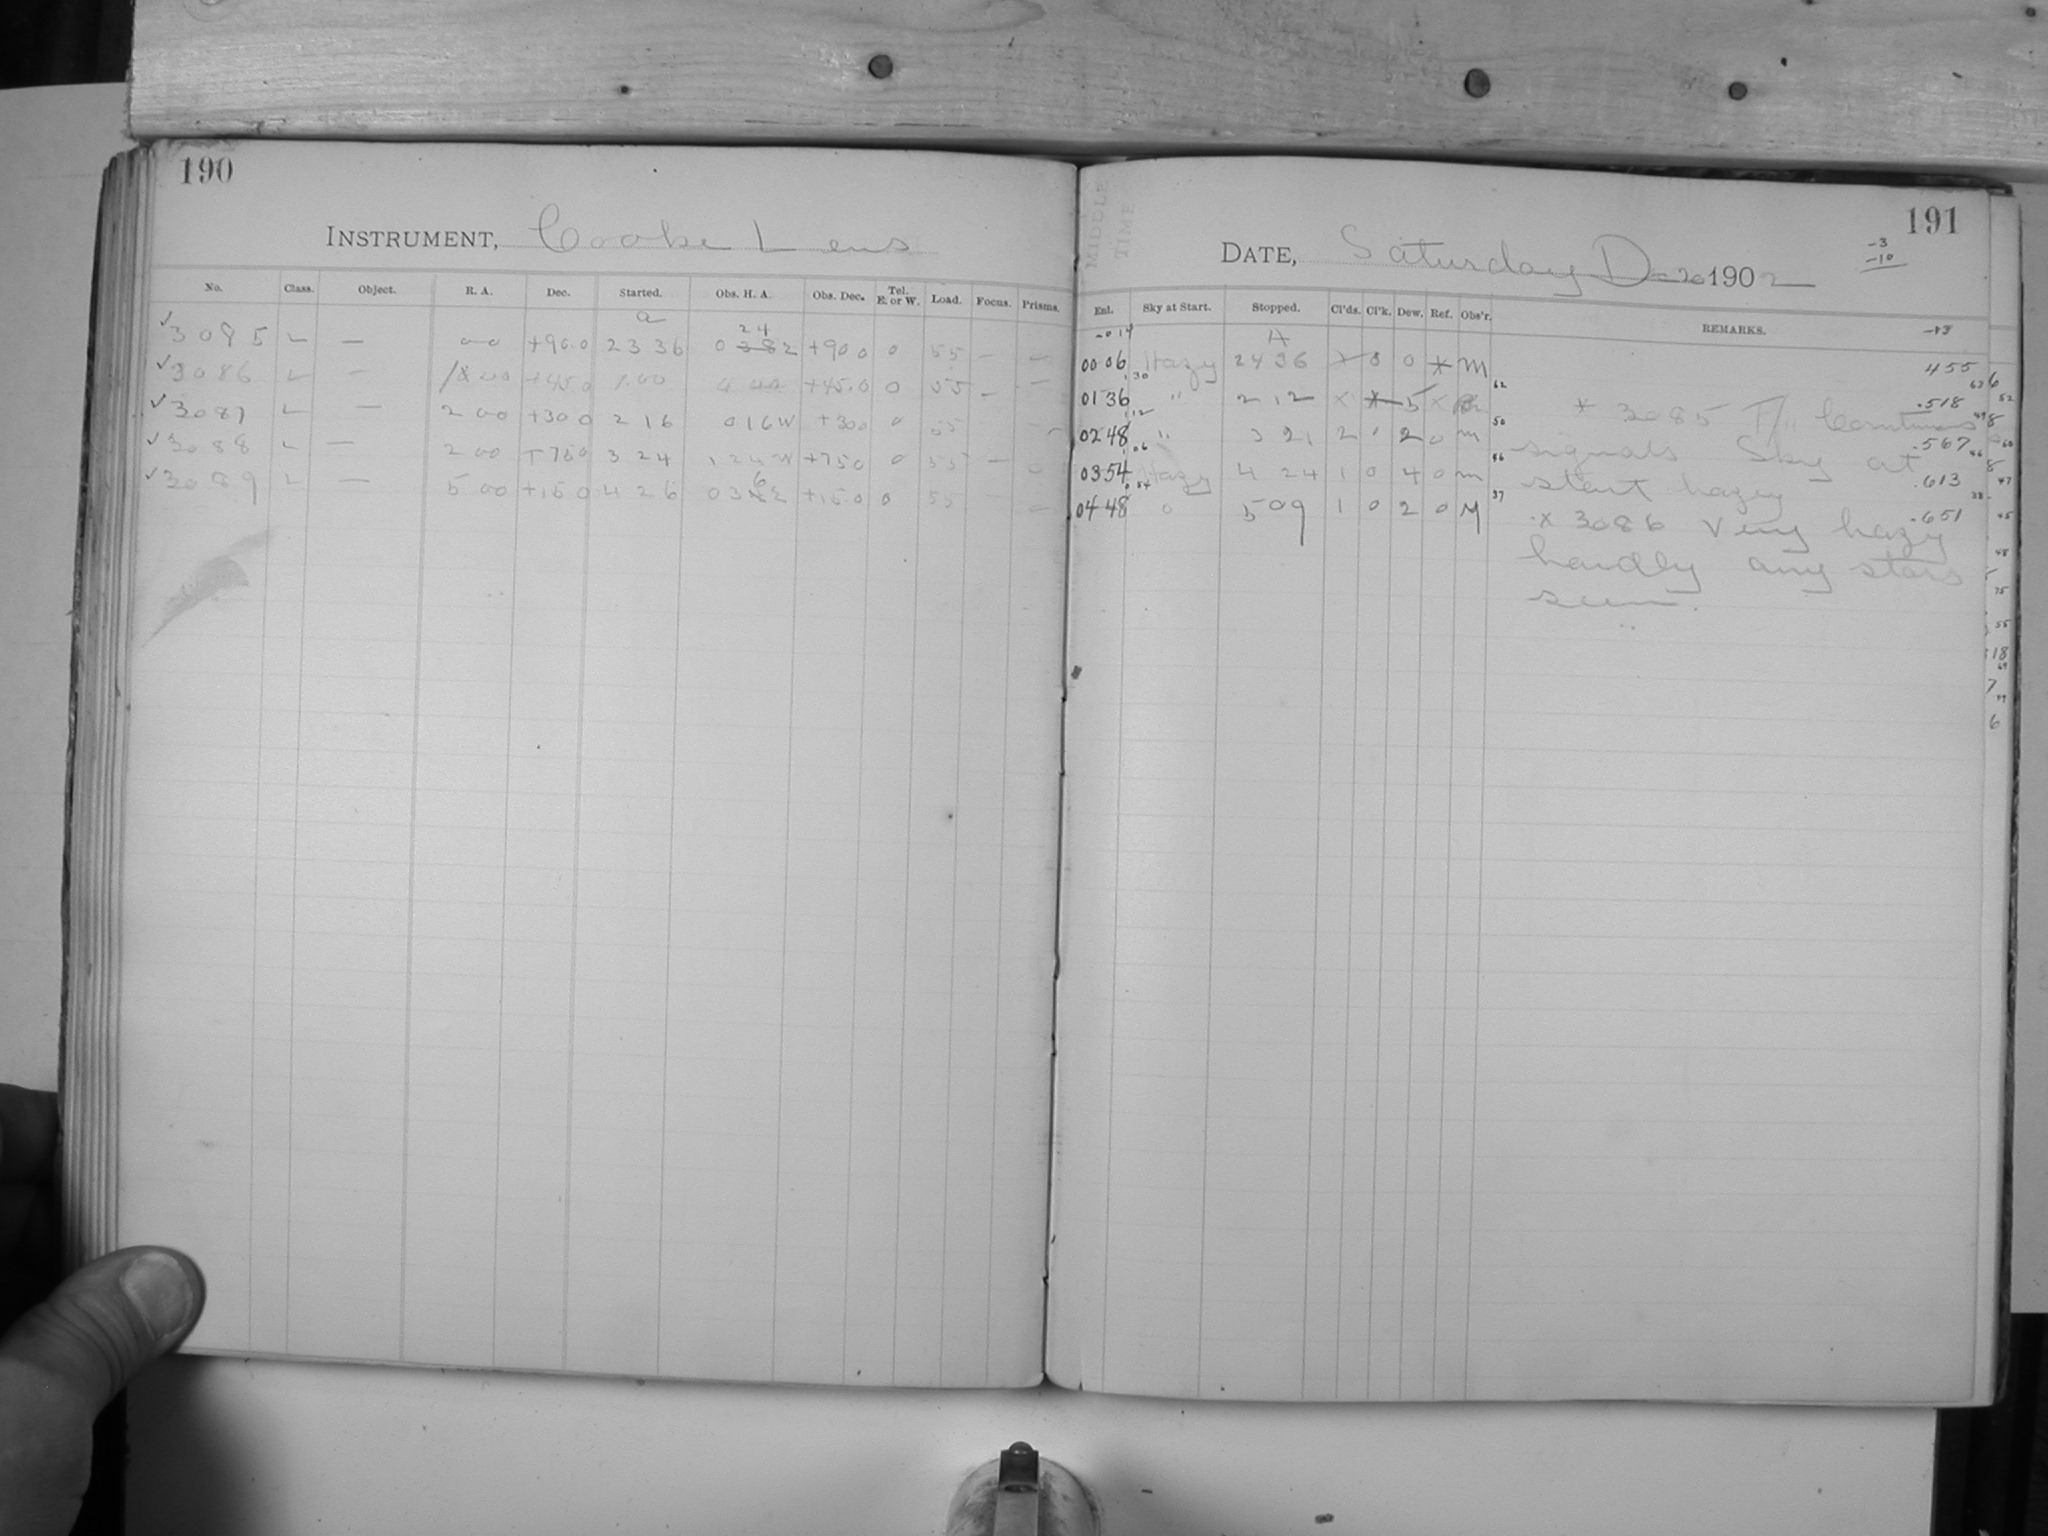 190
INSTRUMENT, Cooke Lens
No. Class. Object. R. A. Dec. Started. Obs. H. A. Obs. Dec. Tel. E. or W. Load. Focus. Prisms.
a 24
✓ 3085 L — 00 +90.0 23 36 0 382 +900 0 55 — —
✓ 3086 L — 00 +45.0 1.00 +45.0 0 55 — —
✓ 3087 L — 2 00 +30 0 2 16 0 16 W +300 0 55
✓ 3088 L — 2 00 +75 0 3 24 1 24 W +750 0 55 — 0
6
✓ 3089 L — 5 00 +15 0 4 26 0 3 E +15.0 0 55 —
MIDDLE
TIME
191
DATE, Saturday D 20 1902
-3
-10
Ent. Sky at Start. Stopped. Cl'ds. Cl'k. Dew. Ref. Obs'r. REMARKS.
-014 A -13
00 06 Hazy 24 36 × 0 0 * M 455
30 62 63
01 36 " 2 12 × * 5 × .518
12 50 49
02 48 " 3 21 2 ' 2 0 m .567
06 46 46
03 54 Hazy 4 24 1 0 4 0 m .613
54 37 38
04 48 0 5 09 1 0 2 0 M .651
* 3085 Continuous
signals Sky at
start hazy
.x 3086 Very hazy
hardly any stars
seen.